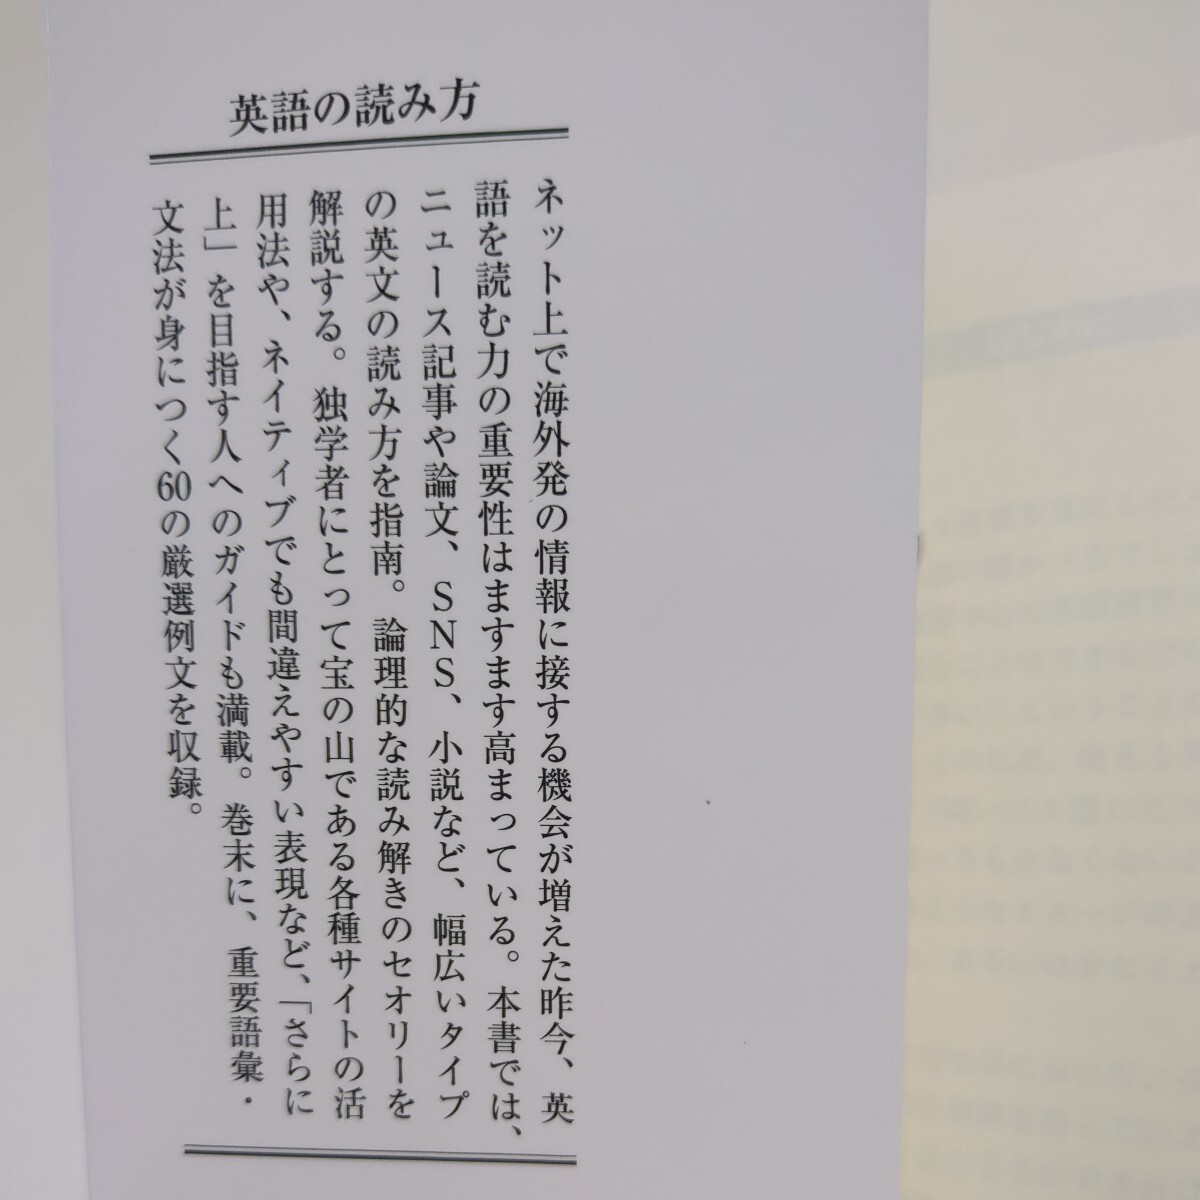 英語の読み方
ネット上で海外発の情報に接する機会が増えた昨今、英
語を読む力の重要性はますます高まっている。本書では、
ニュース記事や論文、SNS、小説など、幅広いタイプ
の英文の読み方を指南。論理的な読み解きのセオリーを
解説する。独学者にとって宝の山である各種サイトの活
用法や、ネイティブでも間違えやすい表現など、「さらに
上」を目指す人へのガイドも満載。巻末に、重要語彙・
文法が身につく60の厳選例文を収録。